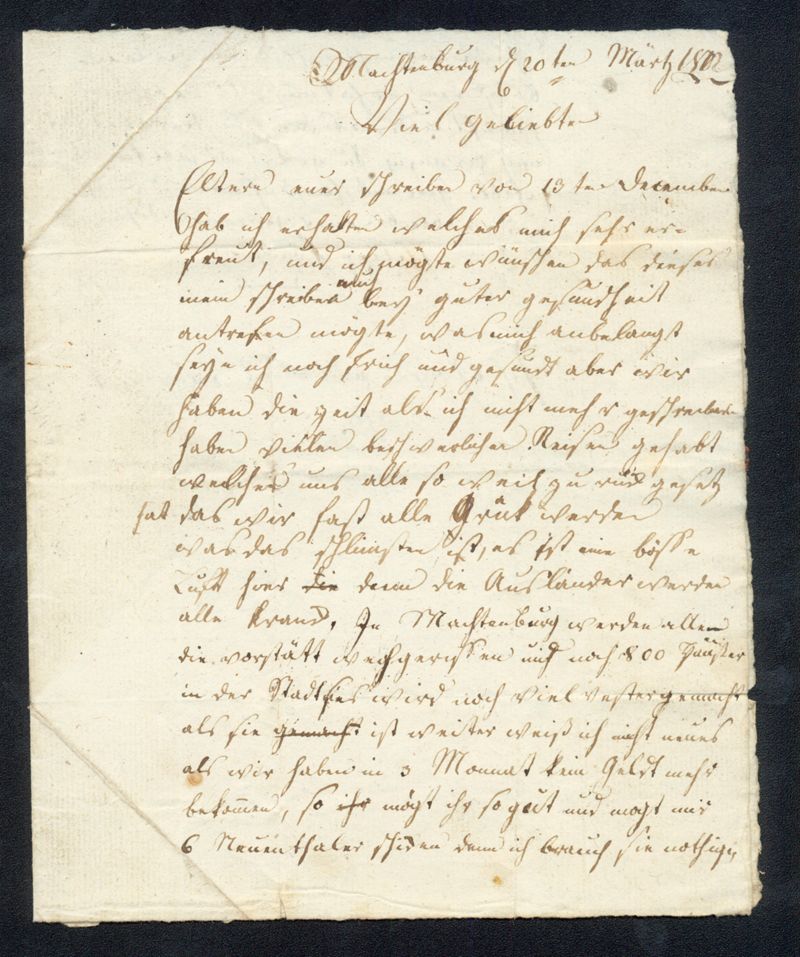 Machtenburg d 20ten Märtz 1812
Viel geliebten
Eltern euer schreiben vom 13ten December
hab ich erhalten welches mich sehr er-
freut, und ich mögte wünschen das dieses
mein schreiben euch bey guter gesundheit
antrefen mögte, was mich anbelangt
seye ich noch frisch und gesundt aber wir
haben die zeit als ich nicht mehr geschrieben
haben vielen beschwerlichen Reisen gehabt
welches uns alle so weit zu rück gesetz
hat das wir fast alle werden
was das schlimsten ist, es ist eine bösse
Luft hier die denn die Ausländer werden
alle krank, In Machtenburg werden allen
die vorstätt wechgerissen und noch 800 Häußer
in der Stadt sies wird noch viel vester gemacht
als sie gemacht ist weiter weiß ich nicht neues
als wir haben in 3 Monnat kein Geldt mehr
bekommen, so ihr mögt ihr so gut und mogt mir
6 Neuenthaler schiken denn ich brauch sie nothig,